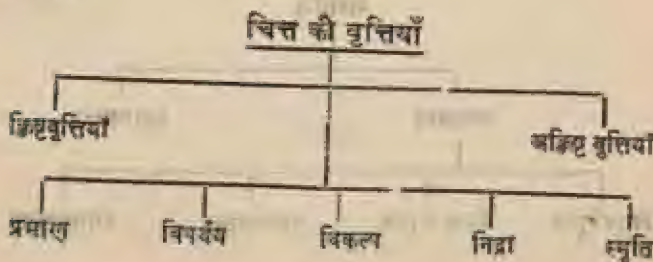 चित्त की वृत्तियाँ
क्लिष्टवृत्तियाँ अक्लिष्ट वृत्तियाँ
प्रमाण विपर्यय विकल्प निद्रा स्मृति